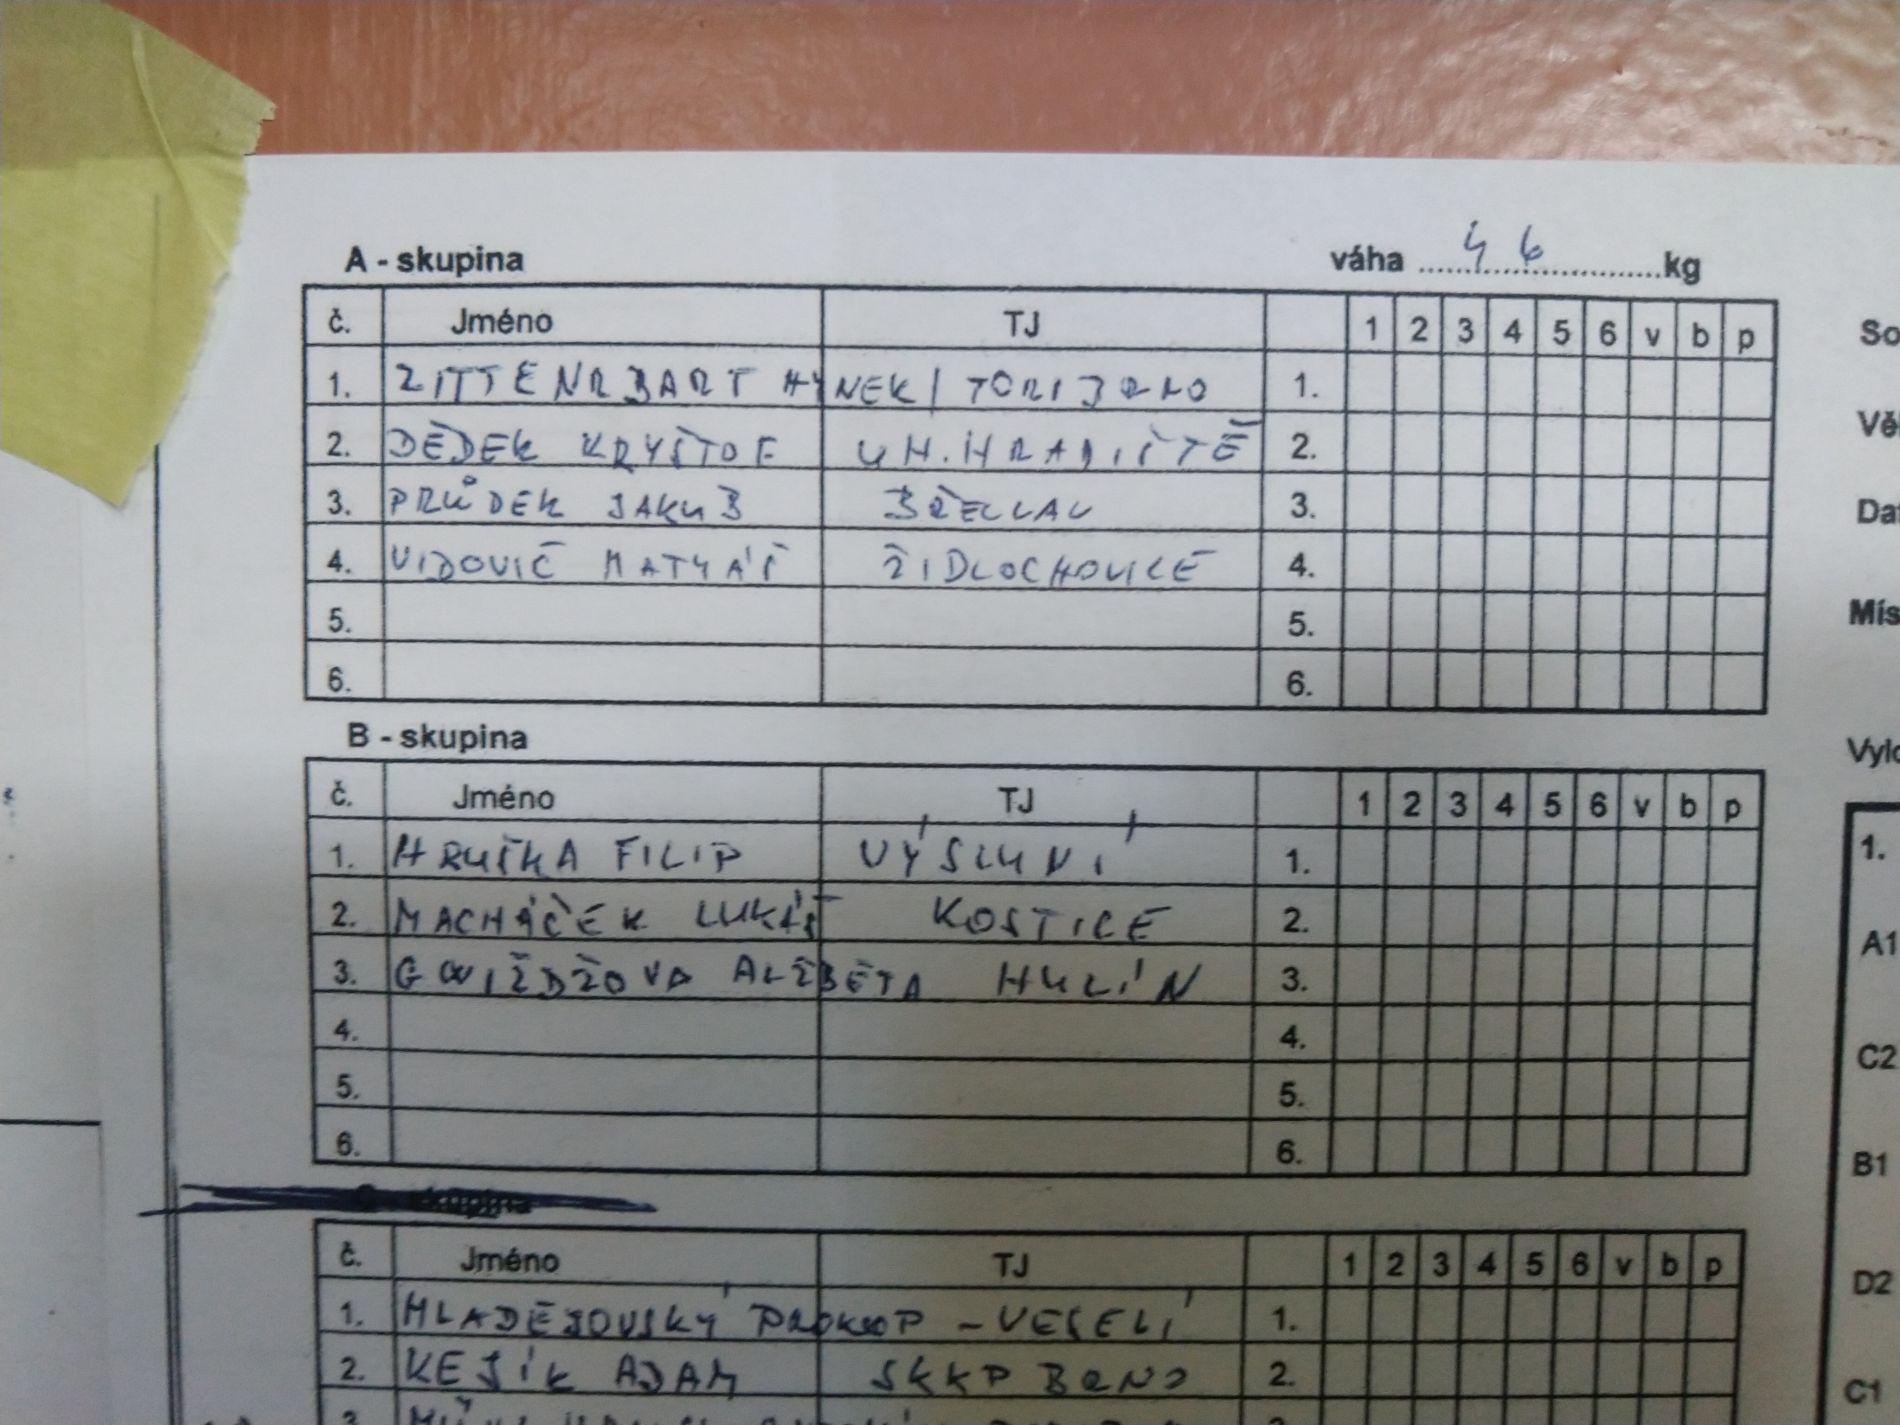 A - skupina váha 46 kg
č. Jméno TJ 1 2 3 4 5 6 v b p
1. ZITTENRBART HYNEK / TORI BRNO 1.
2. DĚDEK KRYŠTOF UH. HRADIŠTĚ 2.
3. PRŮDEK JAKUB BŘECLAV 3.
4. VIDOVIČ MATYÁŠ ŽIDLOCHOVICE 4.
5. 5.
6. 6.
B - skupina
č. Jméno TJ 1 2 3 4 5 6 v b p
1. HRUŠKA FILIP VÝSLUNÍ 1.
2. MACHÁČEK LUKÁŠ KOSTICE 2.
3. GWIŽDŽOVA ALŽBĚTA HULÍN 3.
4. 4.
5. 5.
6. 6.
skupina
č. Jméno TJ 1 2 3 4 5 6 v b p
1. MLADĚJOVSKÝ PROKOP - VESELÍ 1.
2. KEJÍK ADAM SKKP BRNO 2.
So
Vě
Dat
Mís
Vylo
1.
A1
C2
B1
D2
C1